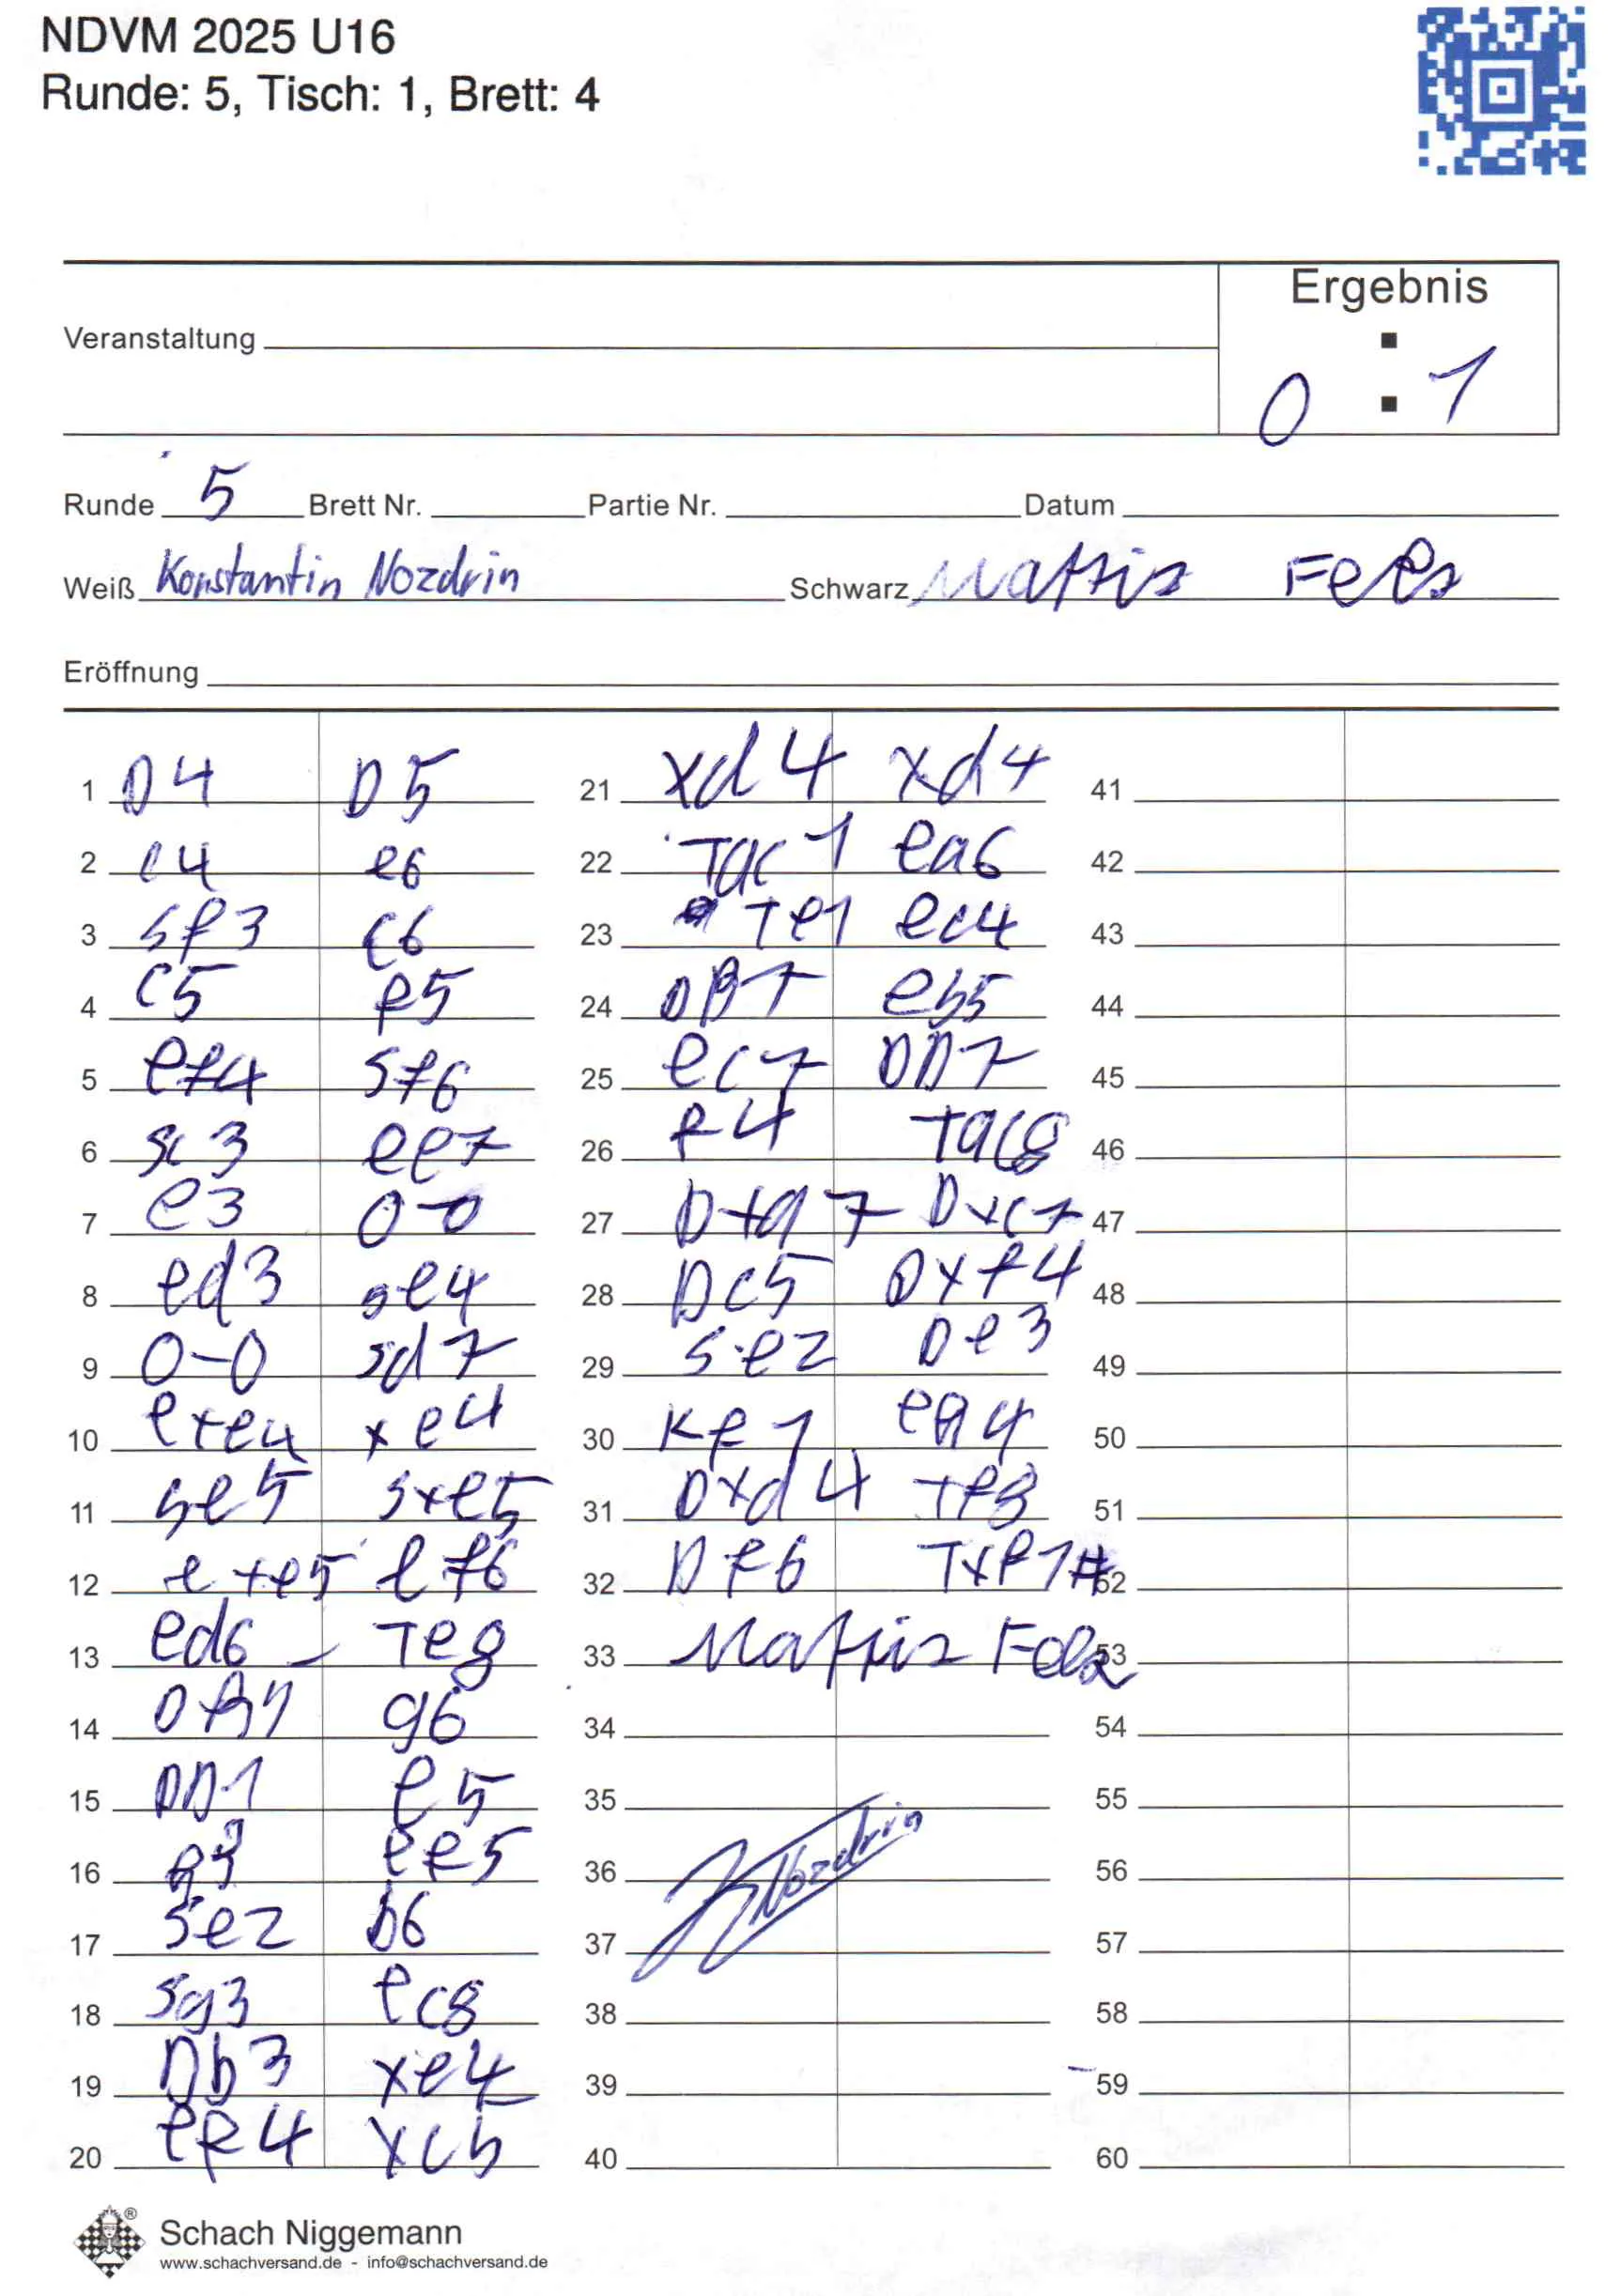 NDVM 2025 U16
Runde: 5, Tisch: 1, Brett: 4
Ergebnis
Veranstaltung
0 : 1
Runde 5 Brett Nr. Partie Nr. Datum
Weiß Konstantin Nozdrin Schwarz Mattis Fels
Eröffnung
1 D4 D5
2 c4 e6
3 sf3 c6
4 c5 f5
5 ef4 sf6
6 sc3 ee7
7 e3 0-0
8 ed3 se4
9 0-0 sd7
10 exe4 xe4
11 se5 sxe5
12 exe5 ef6
13 ed6 Te8
14 g6
15 DD1 e5
16 ef5
17 se2 b6
18 sg3 ec8
19 Db3 xe4
20 ef4 xc5
21 xd4 xd4
22 Tac1 ea6
23 Te1 ec4
24 DB7 eb5
25 ec7 DD7
26 f4 Tac8
27 Dxa7 Dxc7
28 Dc5 Dxf4
29 se2 De3
30 Kf1 ea4
31 Dxd4 Tf8
32 Df6 Txf1#
33 Mattis Fels
34
35
36 K Nozdrin
37
38
39
40
41
42
43
44
45
46
47
48
49
50
51
52
53
54
55
56
57
58
59
60
Schach Niggemann
www.schachversand.de - info@schachversand.de